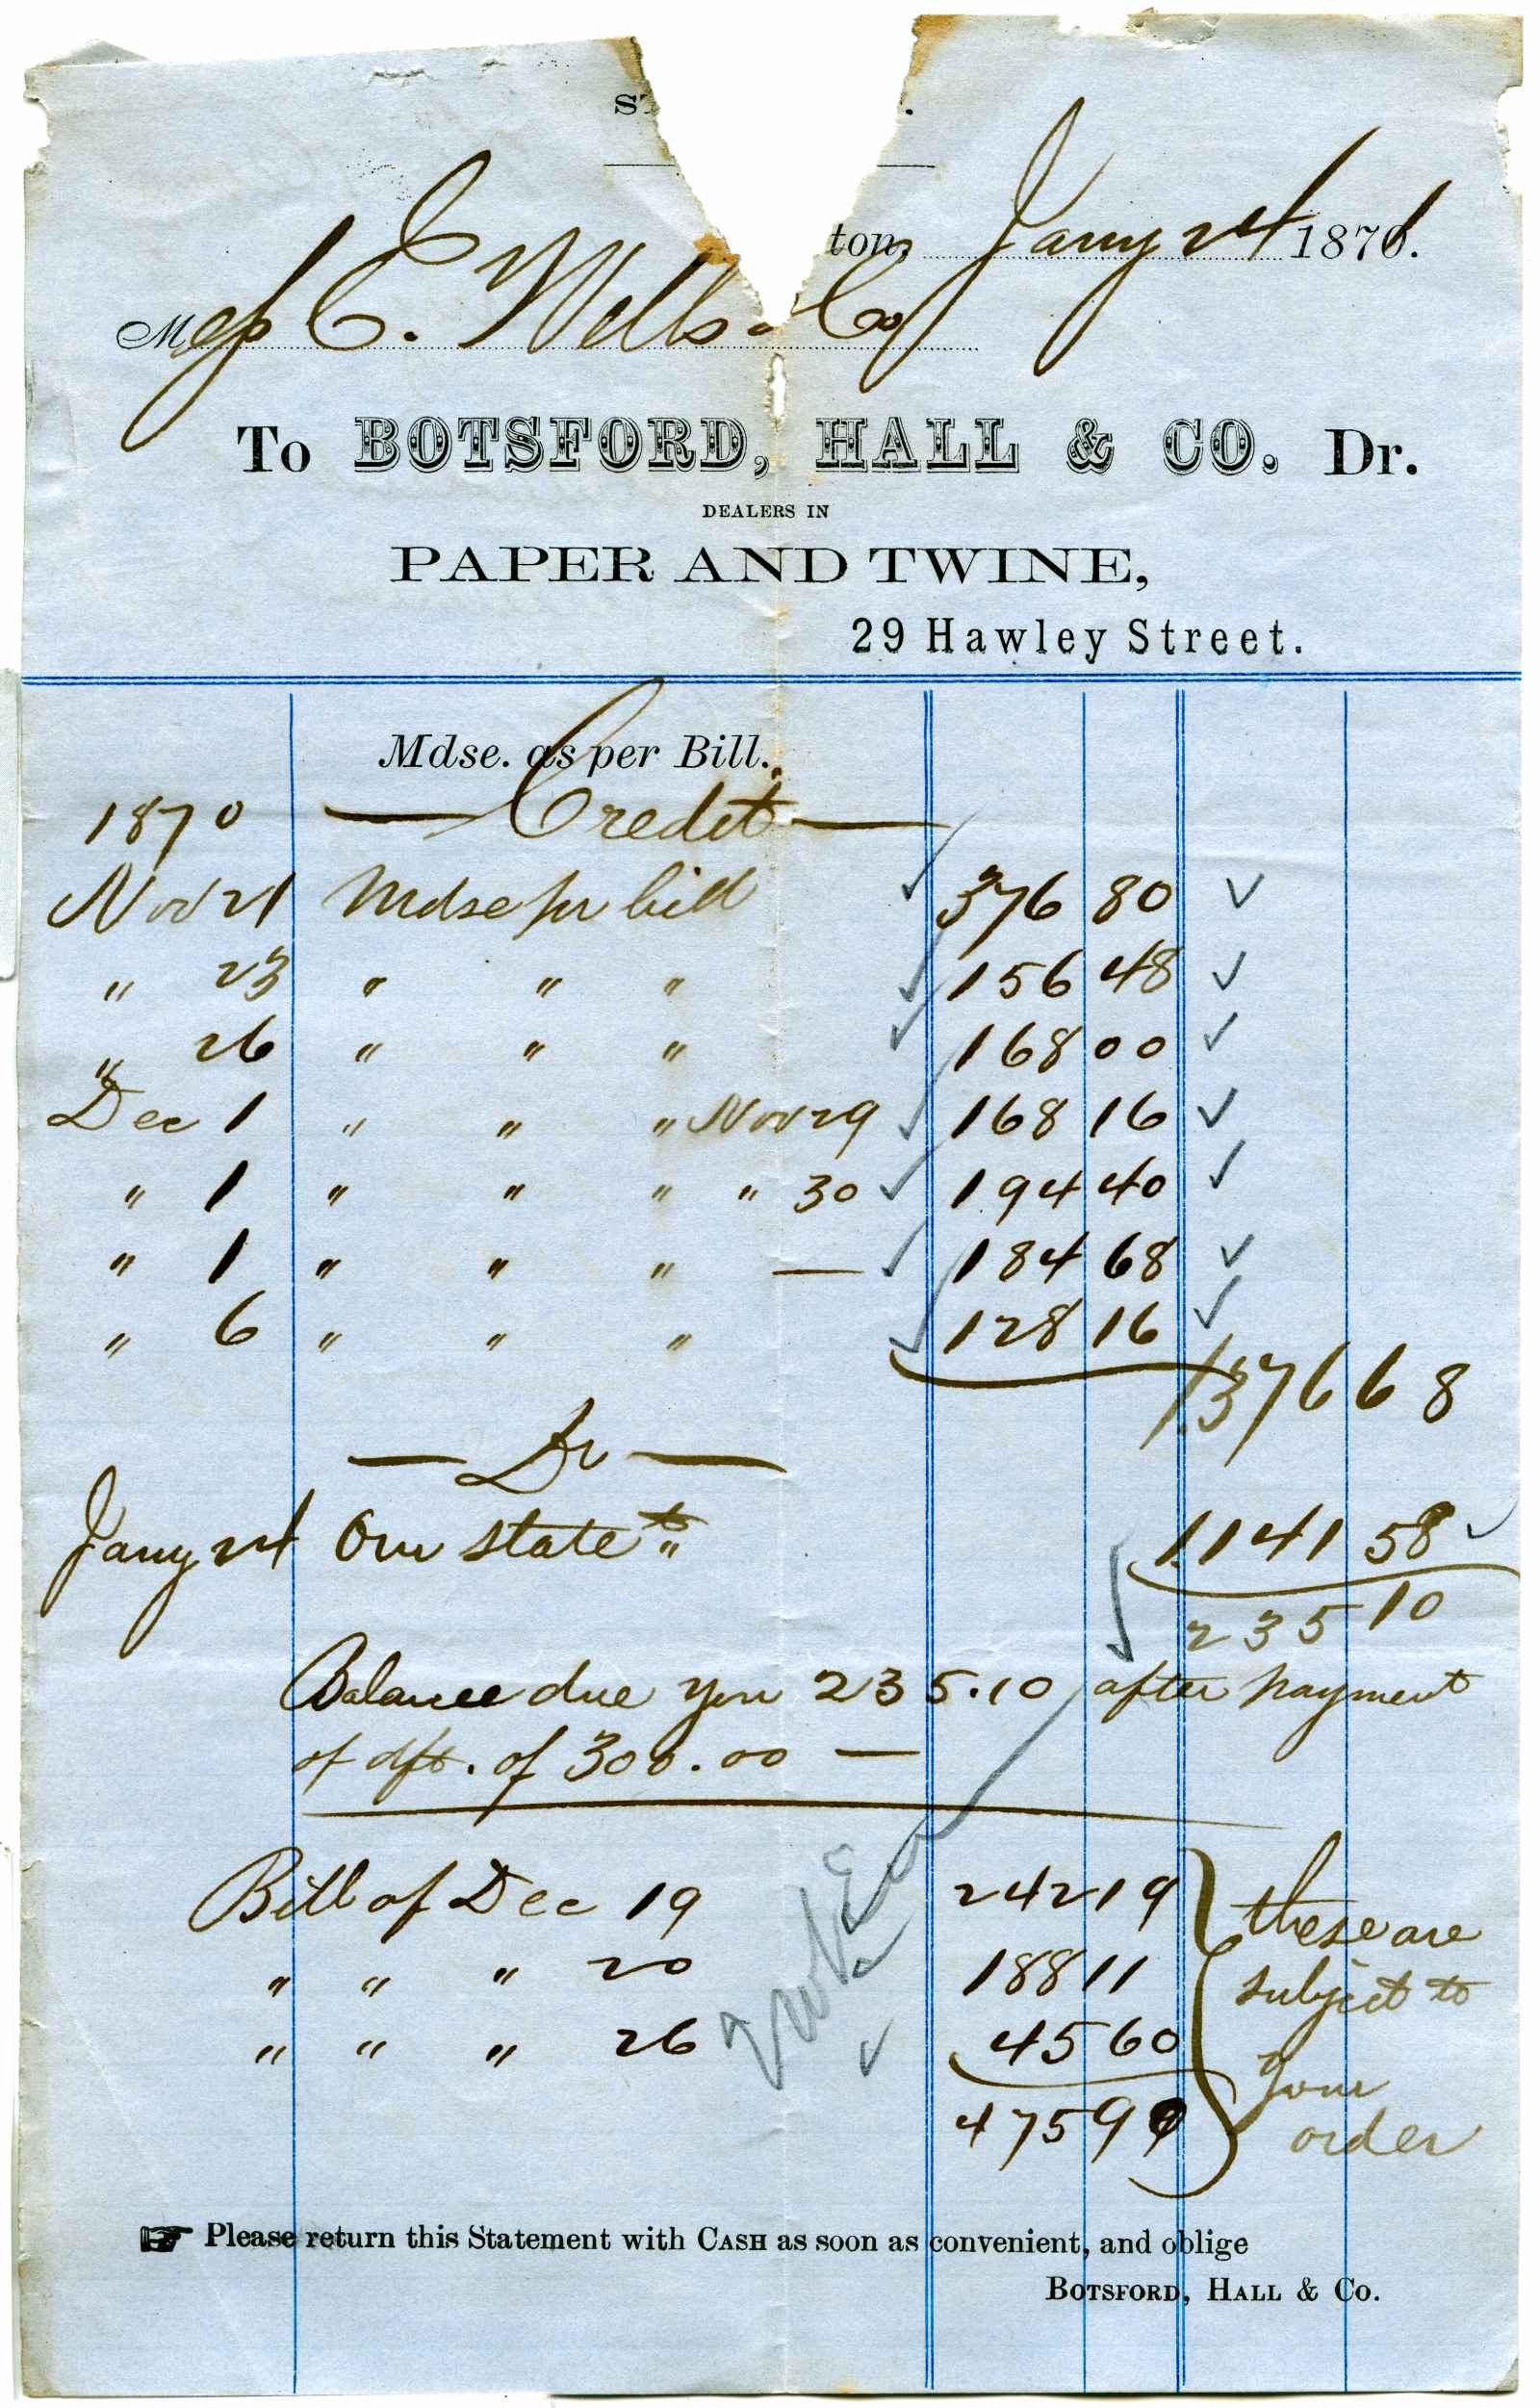 ton, Jany 24 1871.
Mess C. Wells & Co
To BOTSFORD, HALL & CO. Dr.
DEALERS IN
PAPER AND TWINE,
29 Hawley Street.
Mdse. as per Bill.
1870 — Credit —
Nov 21 Mdse per bill 376 80
" 23 " " " 156 48
" 26 " " " 168 00
Dec 1 " " " Nov 29 168 16
" 1 " " " " 30 194 40
" 1 " " " — 184 68
" 6 " " " 128 16
1376 68
— Dr —
Jany 24 Our state" 1141 58
235 10
Balance due you 235.10 after payment
of dft. of 300.00 —
Bill of Dec 19 242 19 these are
" " " 20 188 11 subject to
" " " 26 45 60 your
475 90 order
☞ Please return this Statement with CASH as soon as convenient, and oblige
BOTSFORD, HALL & CO.